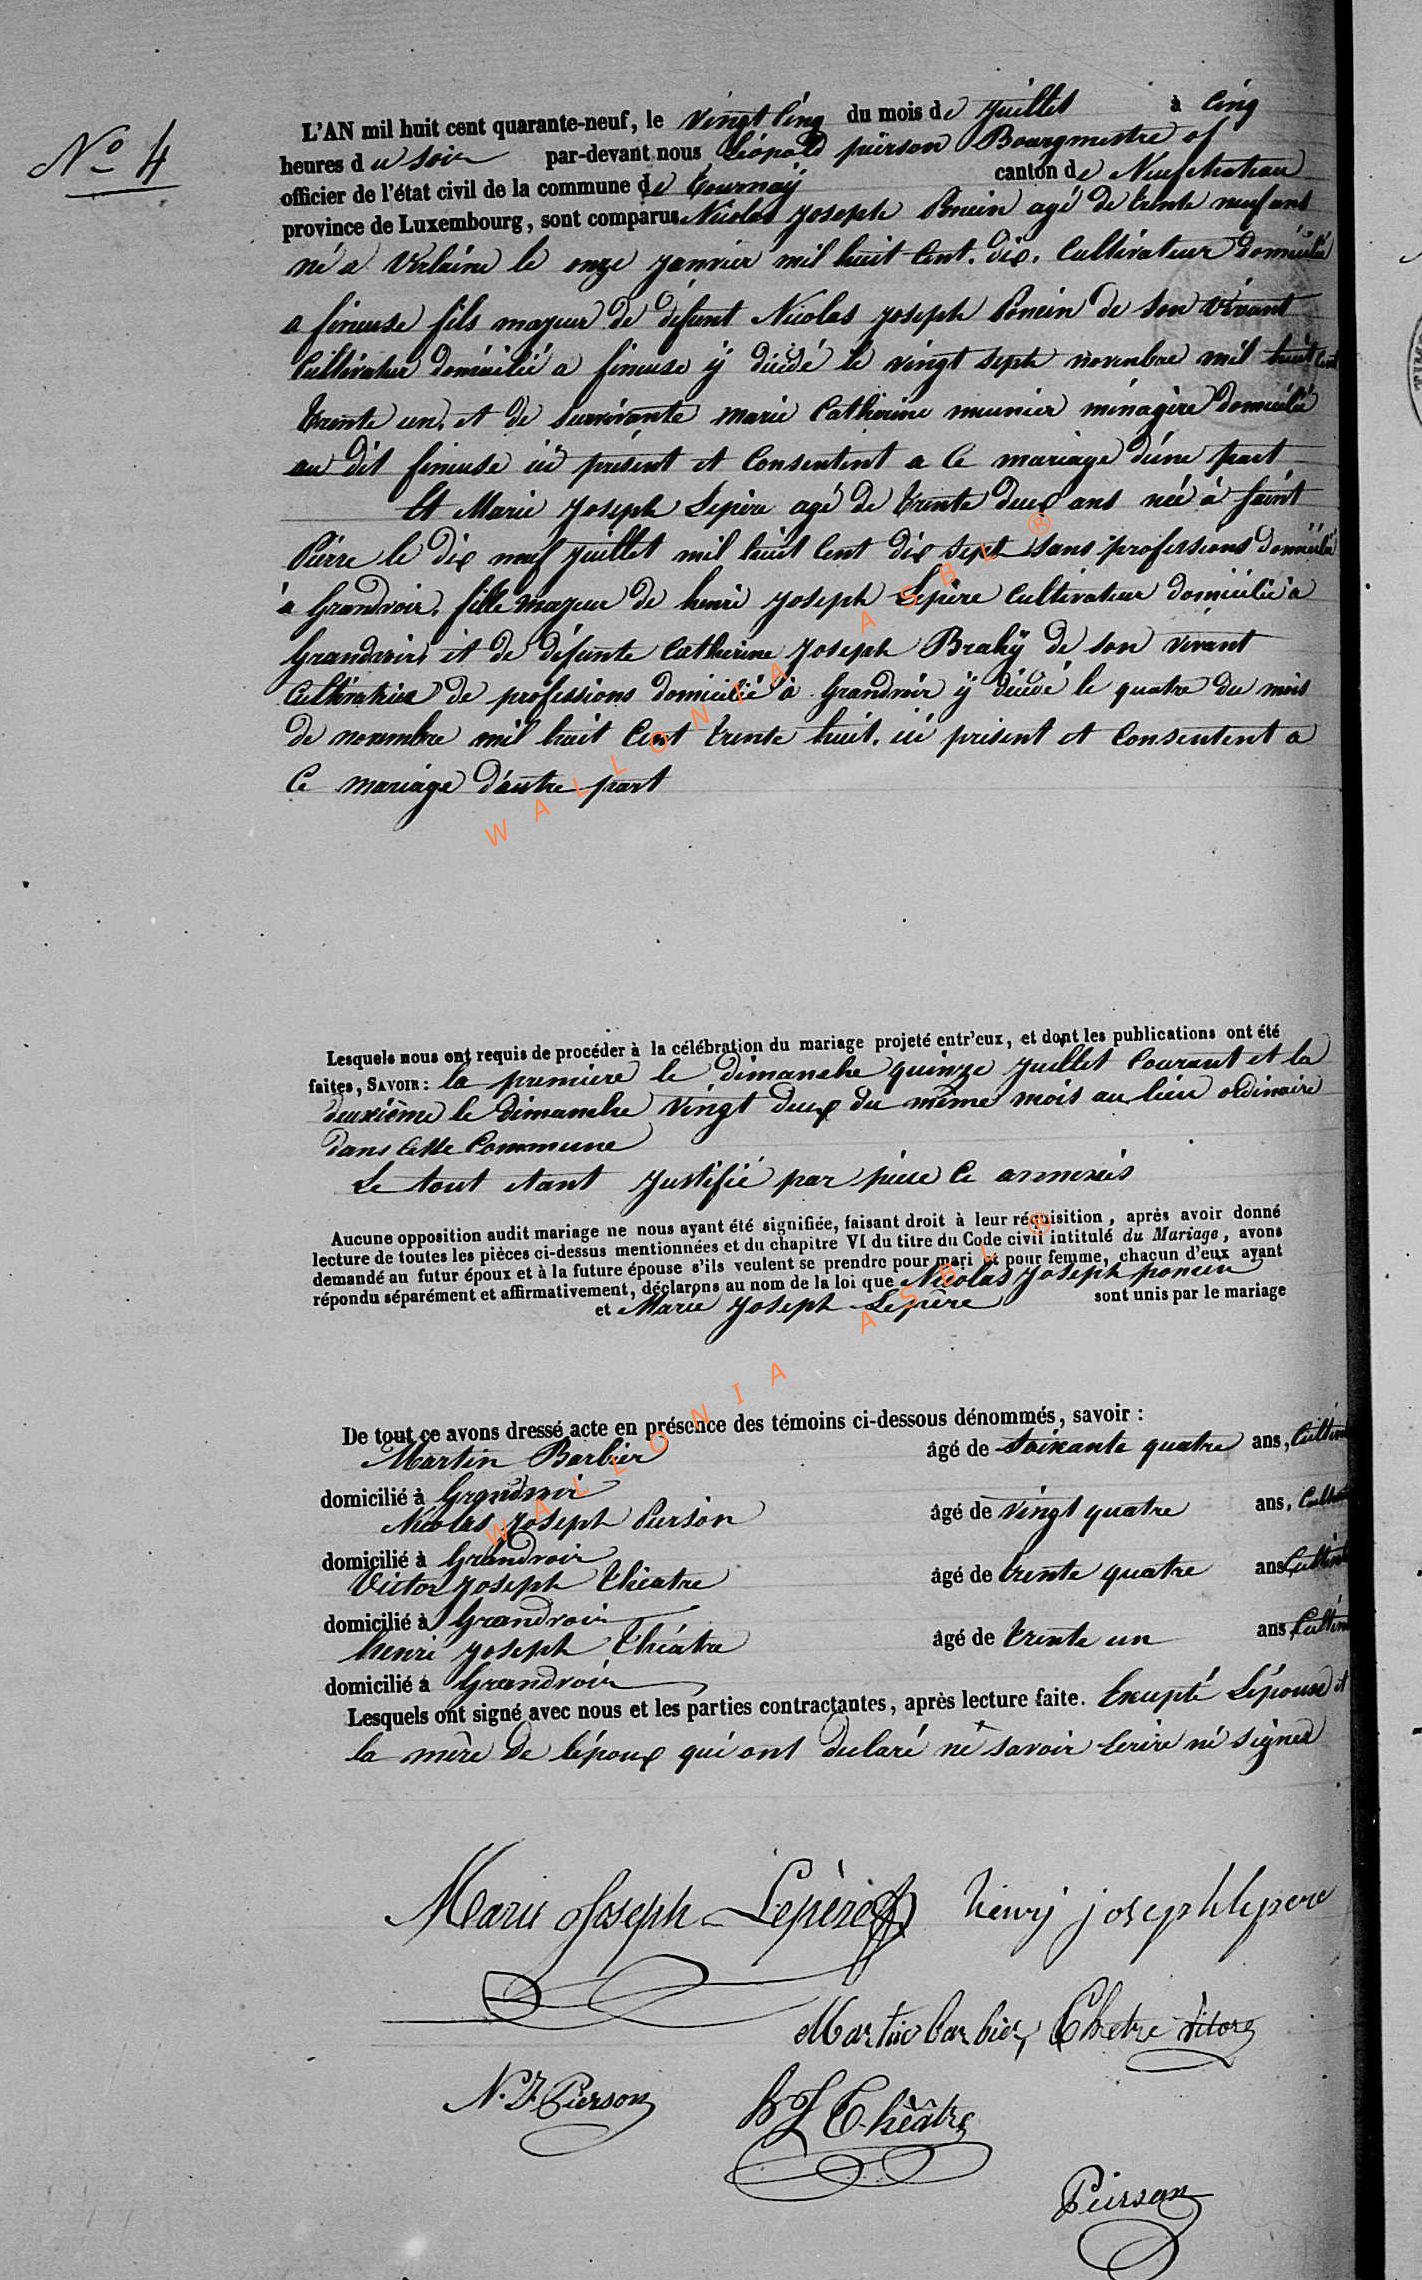 No 4
L'AN mil huit cent quarante-neuf, le vingt cinq du mois de juillet à cinq
heures du soir par-devant nous Léopold pierson Bourgmestre et
officier de l'état civil de la commune de tournay canton de Neufchateau
province de Luxembourg, sont comparus Nicolas joseph Poncin agé de trente neuf ans
né a Verlaine le onze janvier mil huit cent dix, cultivateur domicilié
a fineuse fils majeur de défunt Nicolas joseph Poncin de son vivant
Cultivateur domicilié a fineuse ÿ décédé le vingt sept novembre mil huit cent
trente un, et de survivante marie catherine meunier ménagère domicilié
au dit fineuse ici présent et consentent a ce mariage d'une part
Et Marie joseph Lepère agé de trente deux ans née à saint
Pierre le dix neuf juillet mil huit cent dix sept sans professions domicilié
à Grandvoir, fille majeur de henri joseph Lepère cultivateur domicilié a
Grandvoir, et de défunte catherine joseph Brahÿ de son vivant
cultivatrice de professions domicilié à Grandvoir ÿ décédé le quatre du mois
de novembre mil huit cent trente huit. ici présent et consentent a
ce mariage d'autre part
Lesquels nous ont requis de procéder à la célébration du mariage projeté entr'eux, et dont les publications ont été
faites, SAVOIR : la première le dimanche quinze juillet courant et la
deuxième le dimanche vingt deux du même mois au lieu ordinaire
dans cette commune
Le tout etant justifié par pièce ce annexés
Aucune opposition audit mariage ne nous ayant été signifiée, faisant droit à leur réquisition, après avoir donné
lecture de toutes les pièces ci-dessus mentionnées et du chapitre VI du titre du Code civil intitulé du Mariage, avons
demandé au futur époux et à la future épouse s'ils veulent se prendre pour mari et pour femme, chacun d'eux ayant
répondu séparément et affirmativement, déclarons au nom de la loi que Nicolas joseph poncin
et Marie joseph Lepère sont unis par le mariage
De tout ce avons dressé acte en présence des témoins ci-dessous dénommés, savoir :
Martin Barbier âgé de soixante quatre ans,
domicilié à Grandvoir
Nicolas joseph Pierson âgé de vingt quatre ans,
domicilié à Grandvoir
Victor joseph théatre âgé de trente quatre ans
domicilié à Grandvoir
henri joseph théatre âgé de trente un ans
domicilié à Grandvoir
Lesquels ont signé avec nous et les parties contractantes, après lecture faite. Excepté L'épouse et
la mère de l'époux qui ont declaré né savoir Ecrire né signer
Marie Joseph Lepère henrij joseph lepere
Martin barbier Théetre Vitor
N. J. Pierson H J Théâtre
Pierson
WALLONIA ASBL ®
WALLONIA ASBL ®